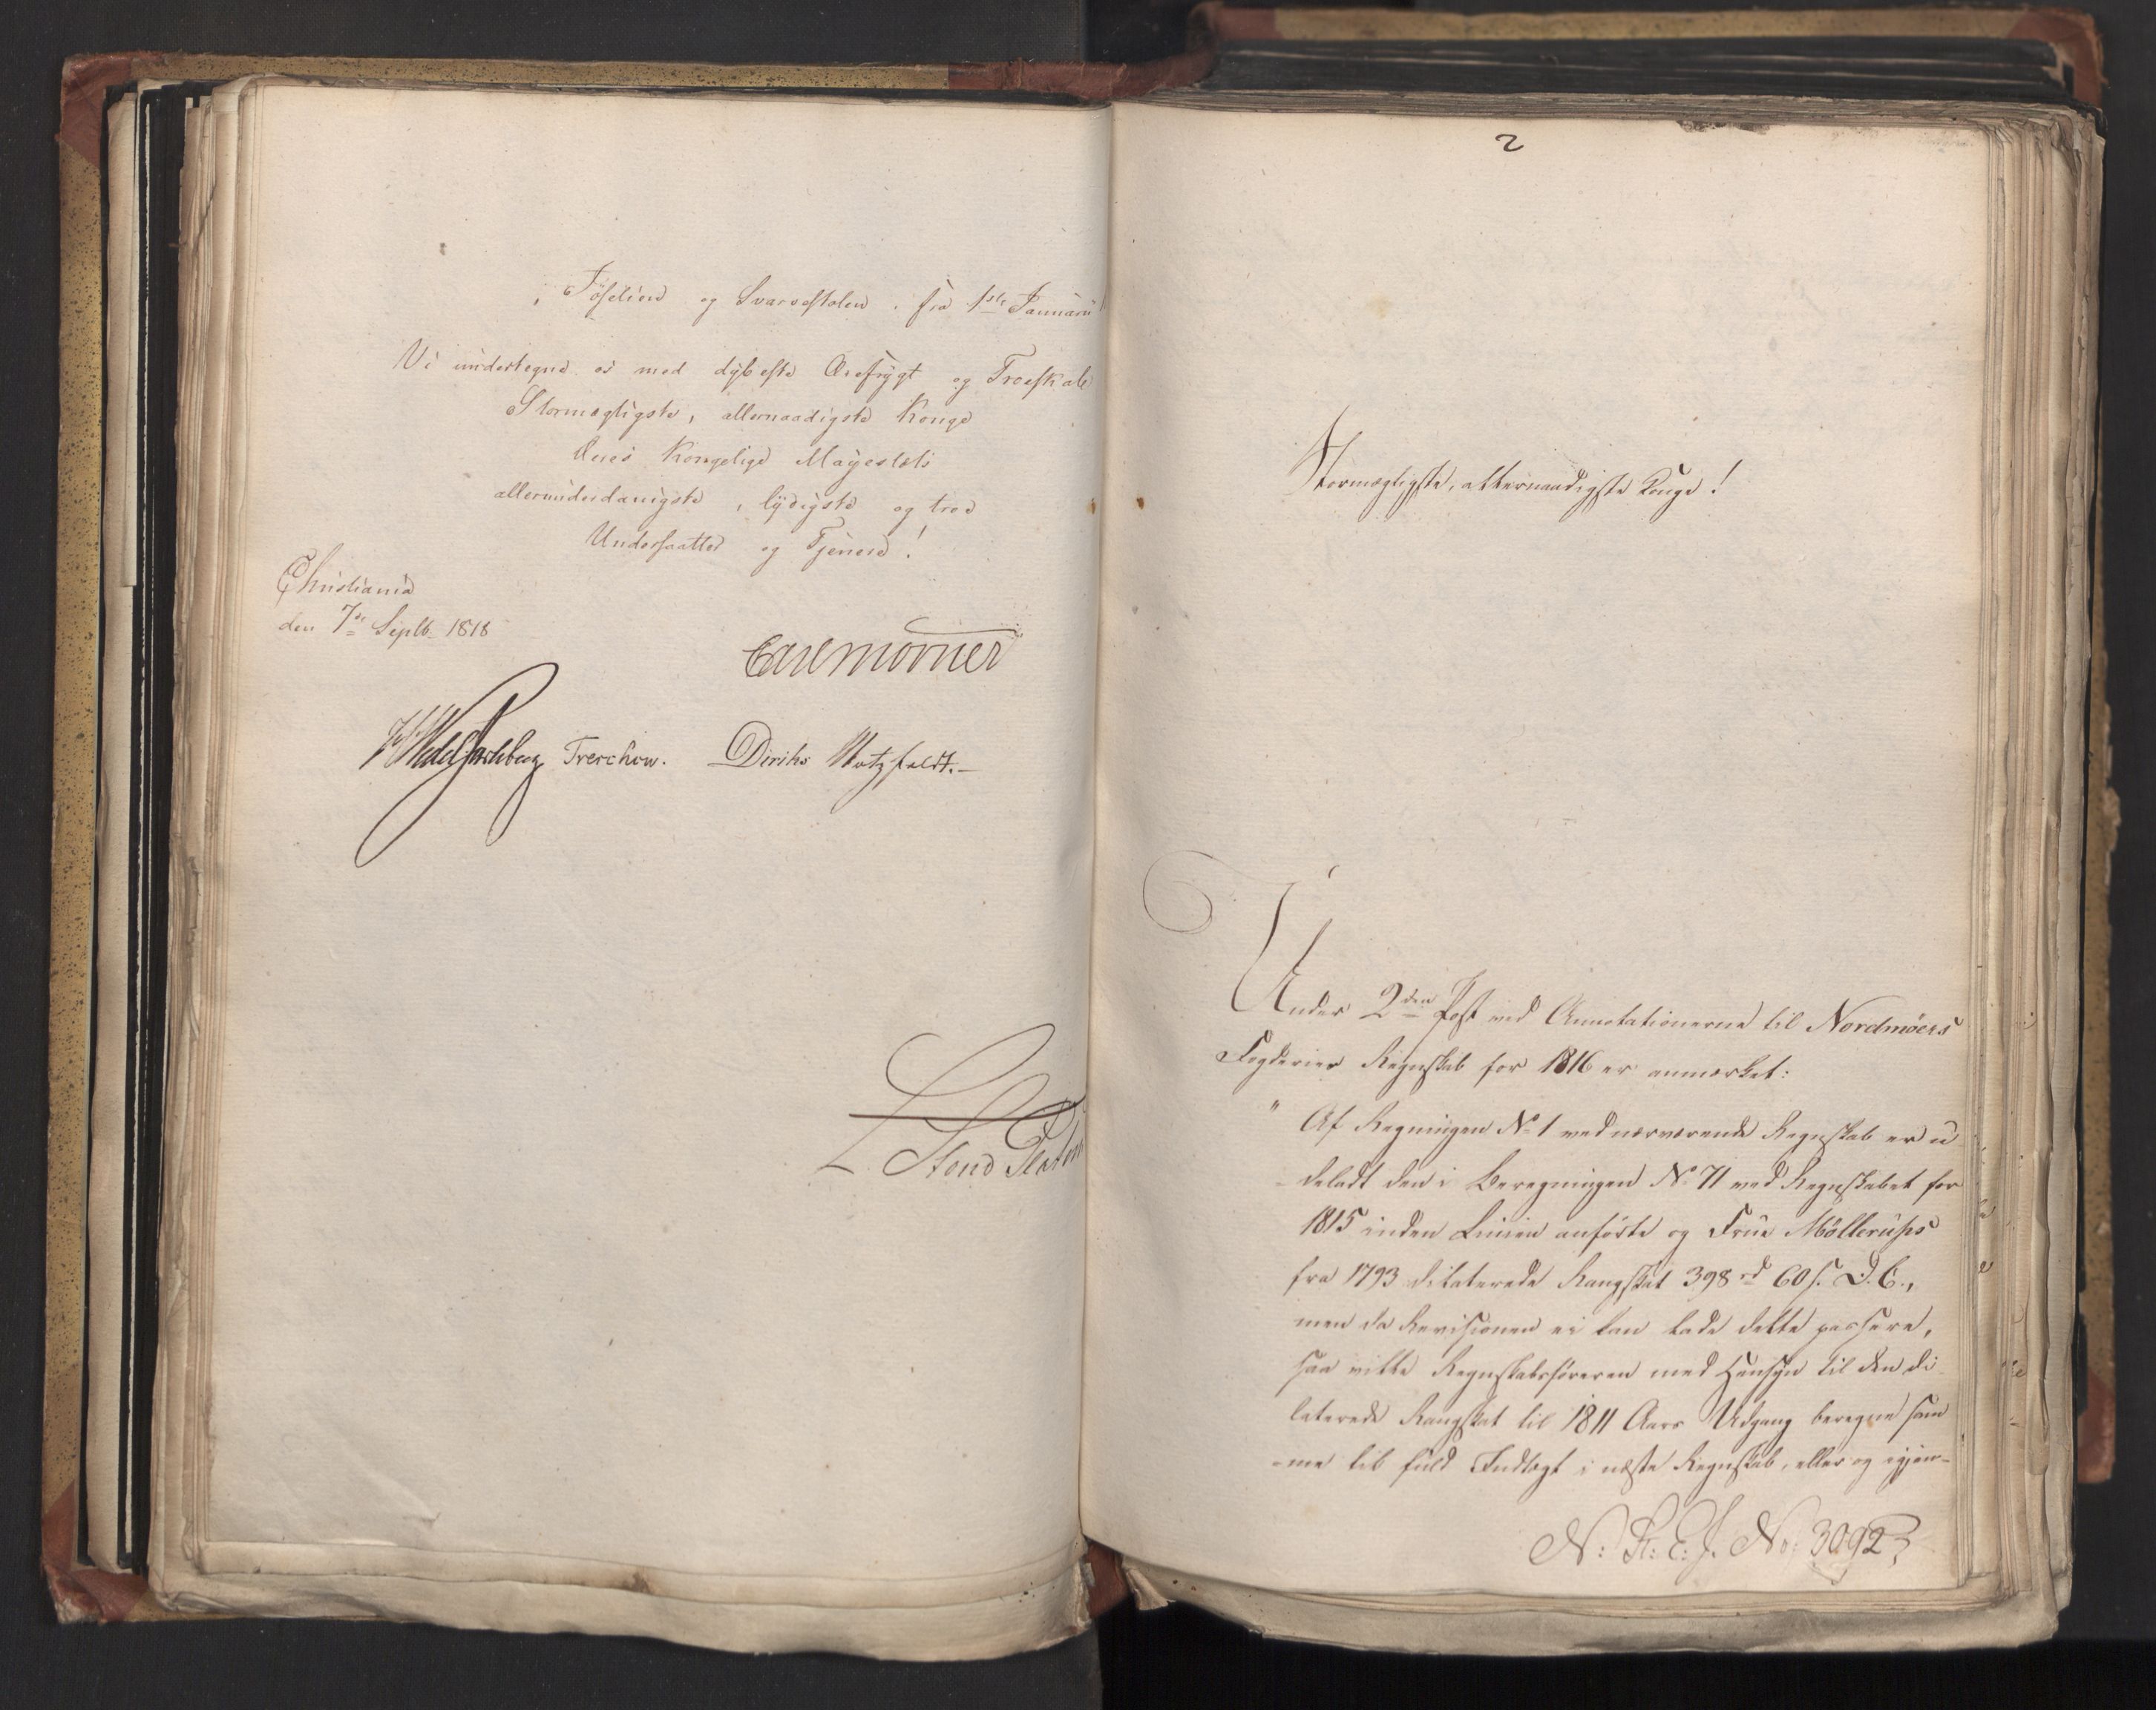 i Föselien og Svarvestolen, fra 1ste Januarii
Vi undertegne os med dybeste Ærefrygt og Troeskab
Stormægtigste, allernaadigste Konge
Deres Kongelige Mayestæts
allerunderdanigste, lydigste og troe
Undersaatter og Tjenere!
Christiania
den 7de Septb. 1818
Carl Mörner
Wedel Jarlsberg Treschow. Diriks Motzfeldt.-
2
Stormægtigste, allernaadigste Konge!
Under 2den Post ved Annotationerne til Nordmöers
Fogderies Regnskab for 1816 er anmærket:
" Af Regningen No 1 ved nærværende Regnskab er u
-deladt den i Beregningen No 71 ved Regnskabet for
1815 inden Linien anförte og Frue Möllerups
fra 1793 dilaterede Rangskat 398 rd 60 s. D.C.,
men da Revisionen ei kan lade dette passere,
saa vilde Regnskabsföreren med Hensyn til den di
laterede Rangskat til 1811 Aars Udgang beregne sam
-me til fuld Indtægt i næste Regnskab, eller og igjen-
N: R: E: J. No: 3092